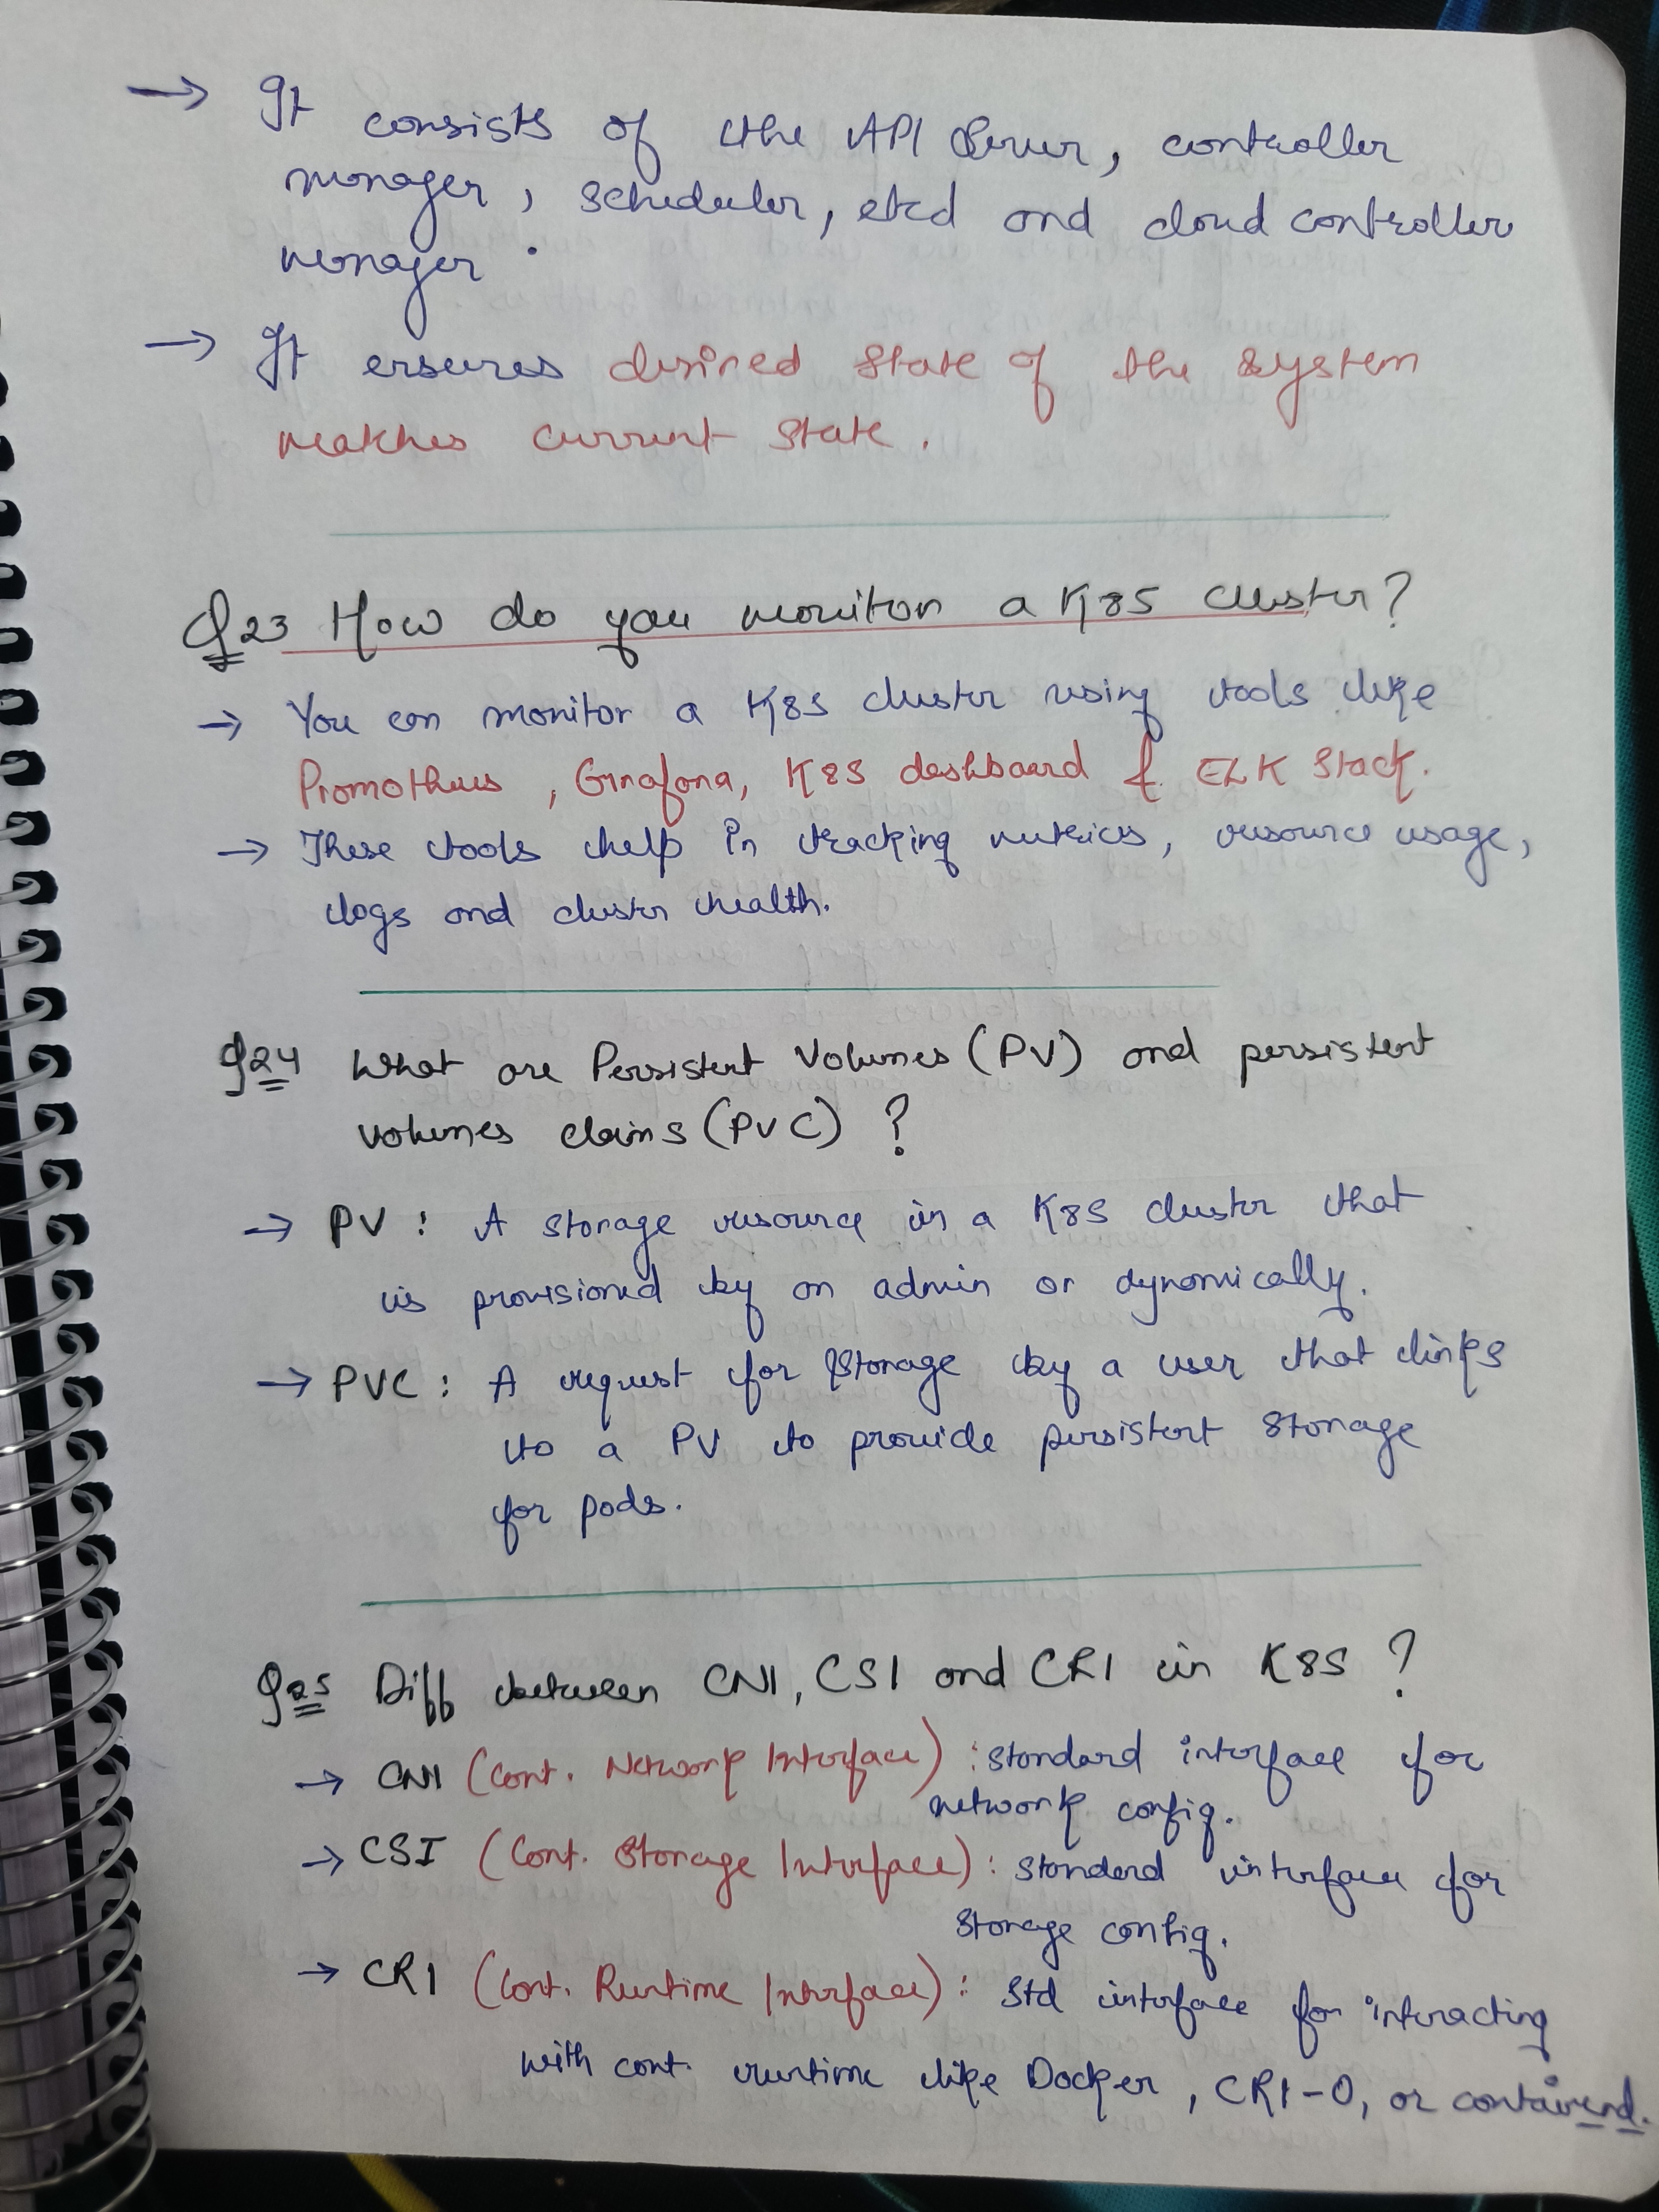 → It consists of the API Server, controller
manager, scheduler, etcd and cloud controller
manager.
→ It ensures desired state of the system
matches current state.
Q23 How do you monitor a K8S cluster?
→ You can monitor a K8S cluster using tools like
Promotheus, Grafana, K8S dashboard & ELK Stack.
→ These tools help in tracking metrics, resource usage,
logs and cluster health.
Q24 What are Persistent Volumes (PV) and persistent
volumes claims (PVC)?
→ PV: A storage resource in a K8S cluster that
is provisioned by an admin or dynamically.
→ PVC: A request for storage by a user that links
to a PV to provide persistent storage
for pods.
Q25 Diff between CNI, CSI and CRI in K8S?
→ CNI (Cont. Network Interface): standard interface for
network config.
→ CSI (Cont. Storage Interface): standard interface for
storage config.
→ CRI (Cont. Runtime Interface): Std interface for interacting
with cont. runtime like Docker, CRI-O, or containerd.